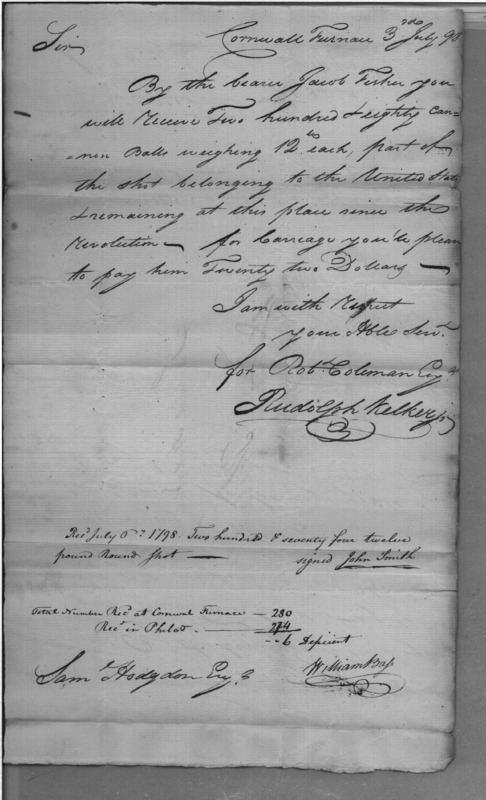 Cornwall Furnace 3rd July 98
Sir
By the bearer Jacob Fisher you
will Receive Two hundred & eighty can=
=non Balls weighing 12 lb each, part of
the shot belonging to the United State
& remaining at this place since the
Revolution — for Carriage you'll please
to pay him Twenty two Dollars —
I am with Respect
your Hble Servt.
for Robt. Coleman Esqr
Rudolph Kelker jr
Recd July 6th 1798. Two hundred & seventy four twelve
pound Round Shot — signed John Smith
Total Number Recd at Cornwal Furnace — 280
Recd in Philad. — 274
-- 6 Deficient
William Bass
Saml Hodgdon Esqr